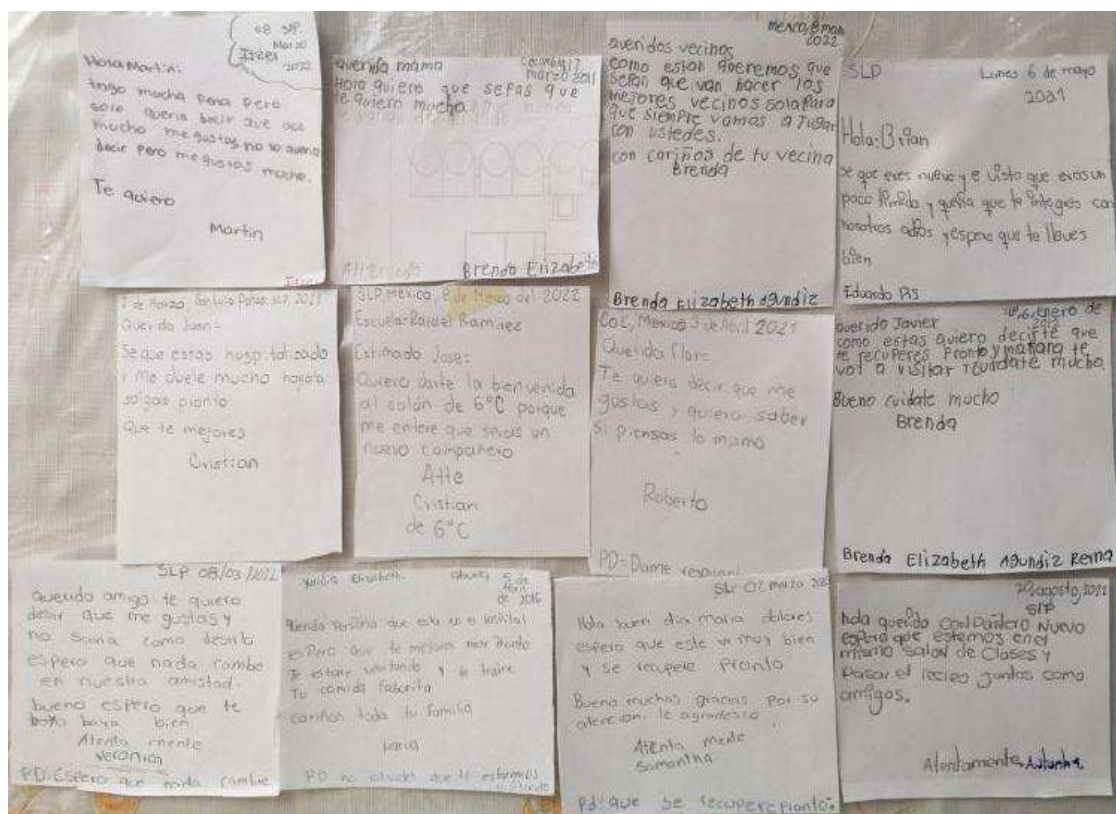 08 SLP
Marzo
Itzel 2022
Hola Martin:
tngo mucha pena pero
solo queria decir que
mucho me gustas no lo queria
decir pero me gustas mucho.
Te quiero
Martin
querida mama
17
marzo 2011
Hola quiero que sepas que
te quiero mucho
Brenda Elizabeth
mexico, 8 marzo
2022
queridos vecinos
como estan queremos que
sepan que van hacer los
mejores vecinos solo para
que siempre vamos a jugar
con ustedes.
con cariños de tu vecina
Brenda
Brenda Elizabeth Agundiz
SLP Lunes 6 de mayo
2021
Hola: Brian
se que eres nuevo y e visto que eres un
poco timido y queria que te integres con
nosotros adios y espero que te lleves
bien
Eduardo
de Marzo, San Luis Potosi, SLP, 2021
Querido Juan:
Se que estas hospitalizado
y me duele mucho
salgas pronto
Que te mejores
Cristian
SLP, Mexico, 8 de Marzo del 2022
Escuela: Rafael Ramirez
Estimado Jose:
Quiero darte la bienvenida
al salón de 6°C porque
me entere que seras un
nuevo compañero
Atte
Cristian
de 6°C
Mexico 3 de Abril 2021
Querida Flor:
Te quiero decir que me
gustas y quiero saber
si piensas lo mismo
Roberto
PD= Dame
6, enero de
querido Javier
como estas quiero decirte que
te recuperes pronto y mañana te
voi a visitar cuidate mucho
Bueno cuidate mucho
Brenda
Brenda Elizabeth Agundiz Reyna
SLP 08/03/2022
querido amigo te quiero
desir que me gustas y
no savia como desirti
espero que nada cambe
en nuestra amistad.
bueno espero que te
baya bien
Atenta mente
Veronica
PD: Espero que nada cambe
Elisabeth. 5 de
de 2016
Querida Persona que esta en el hospital
esPero que te mejores muy Pronto
Te estare y te traire
Tu comida faborita
cariños toda tu familia
PD no olvides que te estaremos
SLP 02 marzo
Hola buen dia maria dolores
espero que este vi muy bien
y se recupere Pronto
Bueno muchas gracias Por su
atencion le agradesco.
Atenta mente
Samantha
Pd: que se recupere pronto.
20, agosto, 2022
SLP
hola querido compañero Nuevo
espero que estemos en el
mismo salon de Clases y
Pasar el recreo juntos como
amigos.
Atentamente,